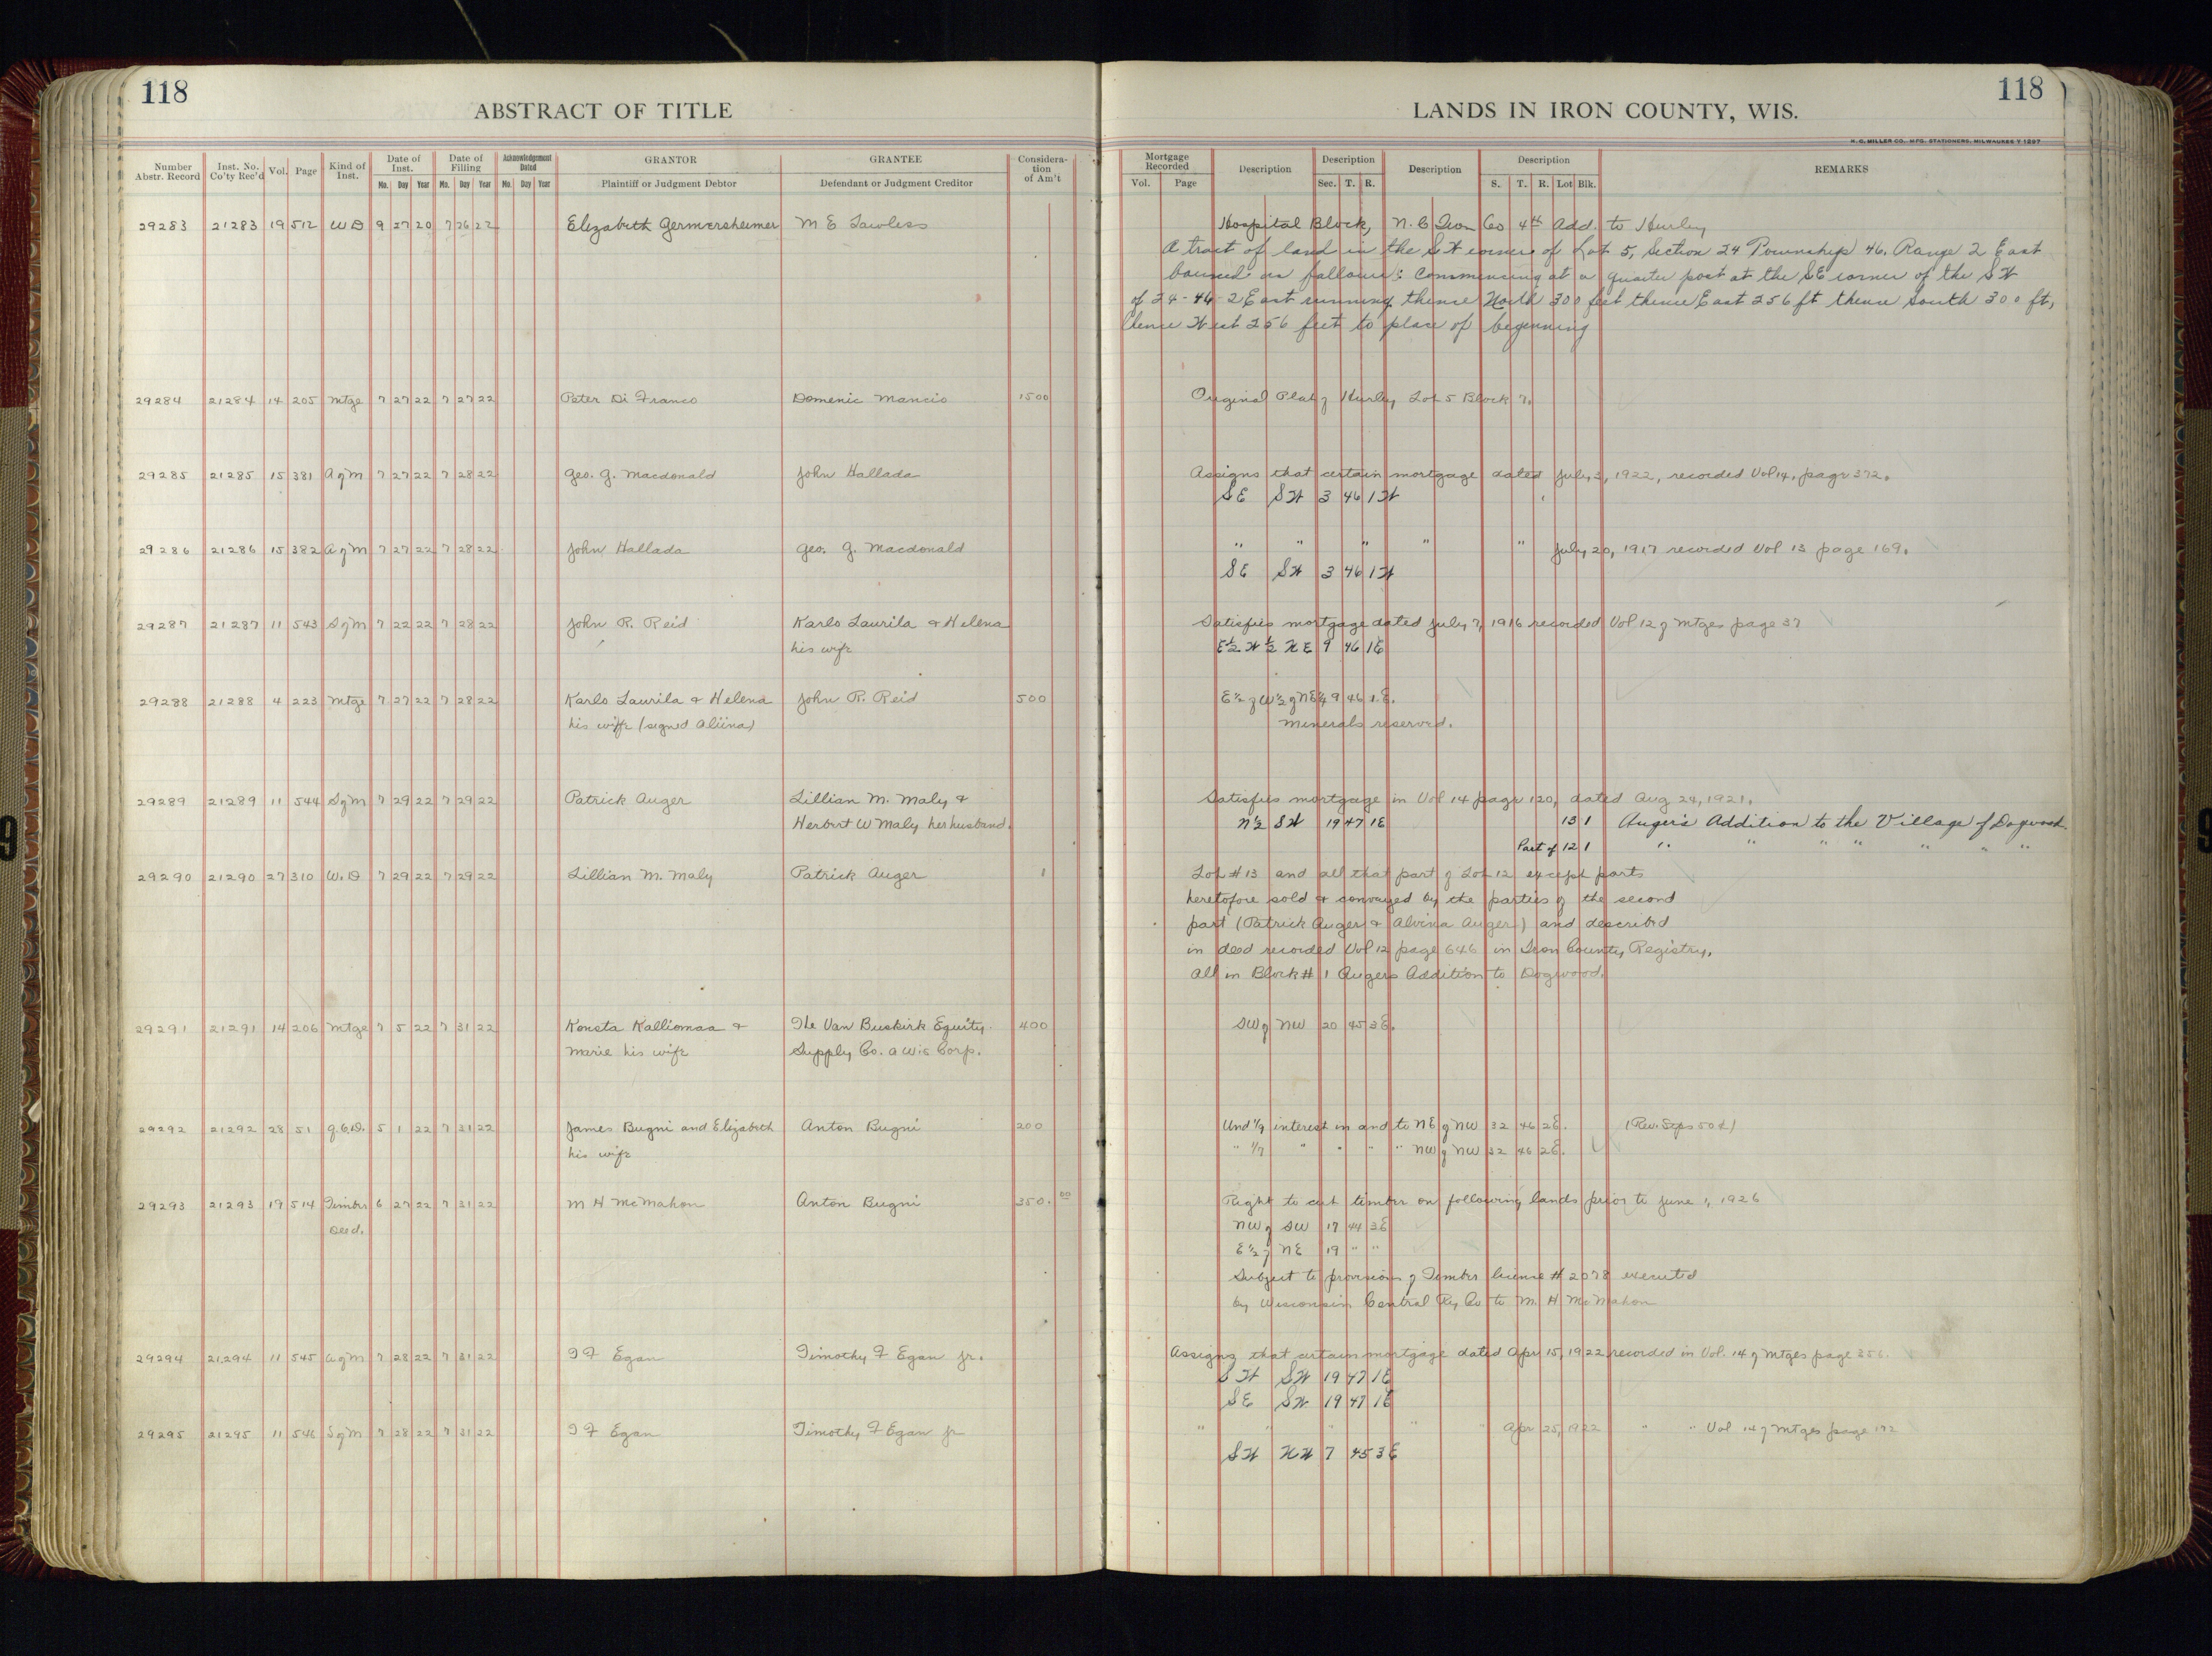 118
ABSTRACT OF TITLE
Number Abstr. Record
Inst. No. Co'ty Rec'd
Vol.
Page
Kind of Inst.
Date of Inst.
Mo. Day Year
Date of Filling
Mo. Day Year
Acknowledgement Dated
Mo. Day Year
GRANTOR
Plaintiff or Judgment Debtor
GRANTEE
Defendant or Judgment Creditor
Considera-tion of Am't
29283 21283 19 512 WD 9 27 20 7 26 22 Elizabeth Germersheimer M E Lawless
29284 21284 14 205 Mtge 7 27 22 7 27 22 Peter Di Franco Domenic Mancio 1500
29285 21285 15 381 A of M 7 27 22 7 28 22 Geo. G. Macdonald John Hallada
29286 21286 15 382 A of M 7 27 22 7 28 22 John Hallada Geo. G. Macdonald
29287 21287 11 543 S of M 7 22 22 7 28 22 John R. Reid Karlo Laurila & Helena
his wife
29288 21288 4 223 Mtge 7 27 22 7 28 22 Karlo Laurila & Helena John R. Reid 500
his wife (signed Aliina)
29289 21289 11 544 S of M 7 29 22 7 29 22 Patrick Auger Lillian M. Maly &
Herbert W Maly her husband.
29290 21290 27 310 W.D 7 29 22 7 29 22 Lillian M. Maly Patrick Auger 1
29291 21291 14 206 Mtge 7 5 22 7 31 22 Konsta Kalliomaa & The Van Buskirk Equity 400
Marie his wife Supply Co. a Wis Corp.
29292 21292 28 51 Q.C.D. 5 1 22 7 31 22 James Bugni and Elizabeth Anton Bugni 200
his wife
29293 21293 19 514 Timber 6 27 22 7 31 22 M H McMahon Anton Bugni 350. 00
Deed.
29294 21294 11 545 A of M 7 28 22 7 31 22 T F Egan Timothy F Egan Jr.
29295 21295 11 546 S of M 7 28 22 7 31 22 T F Egan Timothy F Egan Jr
118
LANDS IN IRON COUNTY, WIS.
H. C. MILLER CO., MFG. STATIONERS, MILWAUKEE Y 1297
Mortgage Recorded
Vol. Page
Description
Description
Sec. T. R.
Description
Description
S. T. R. Lot Blk.
REMARKS
Hospital Block, N. C Iron Co 4th Add. to Hurley
A tract of land in the SW corner of Lot 5, Section 24 Township 46, Range 2 East
bounded as follows: Commencing at a quarter post at the SE corner of the SW
of 24-46-2 East running thence North 300 feet thence East 256 ft thence South 300 ft,
thence West 256 feet to place of beginning
Original Plat of Hurley Lot 5 Block 7.
Assigns that certain mortgage dated July 3, 1922, recorded Vol 14, page 372.
SE SW 3 46 1W
" " " " " July 20, 1917 recorded Vol 13 page 169.
SE SW 3 46 1W
Satisfies mortgage dated July 7, 1916 recorded Vol 12 of Mtges page 37
E½ W½ NE 9 46 1E
E½ of W½ of NE¼ 9 46 1.E.
Minerals reserved.
Satisfies mortgage in Vol 14 page 120, dated Aug 24, 1921.
N½ SW 19 47 1E 13 1 Auger's Addition to the Village of Dogwood.
Part of 12 1 " " " " " " "
Lot #13 and all that part of Lot 12 except parts
heretofore sold & conveyed by the parties of the second
part (Patrick Auger & Alvina Auger) and described
in deed recorded Vol 12 page 646 in Iron County Registry,
all in Block # 1 Augers Addition to Dogwood.
SW of NW 20 45 3E.
Und 1/9 interest in and to NE of NW 32 46 2E. (Rev. Stps 50¢)
" 1/7 " " " NW of NW 32 46 2E.
Right to cut timber on following lands prior to June 1, 1926
NW of SW 17 44 3E
E½ of NE 19 " "
Subject to provisions of Timber license # 2078 executed
by Wisconsin Central Ry Co to M. H McMahon
Assigns that certain mortgage dated Apr 15, 1922 recorded in Vol. 14 of Mtges page
SW SW 19 47 1E
SE SW 19 47 1E
" " " " " Apr 25, 1922 " " Vol 14 of Mtges page 172
SW NW 7 45 3E